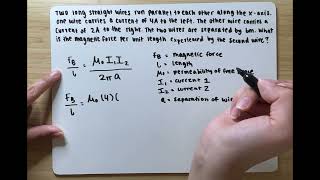 Two long straight wires run parallel to each other along the x-axis.
One wire carries a current of 4A to the left. The other wire carries a
current of 2A to the right. The two wires are separated by 6m. What
is the magnetic force per unit length experienced by the second wire?
F_B/L = μ₀I₁I₂/2πa
F_B = magnetic force
L = length
μ₀ = permeability of free
I₁ = current 1
I₂ = current 2
a = separation of wire
F_B/L = μ₀(4)(